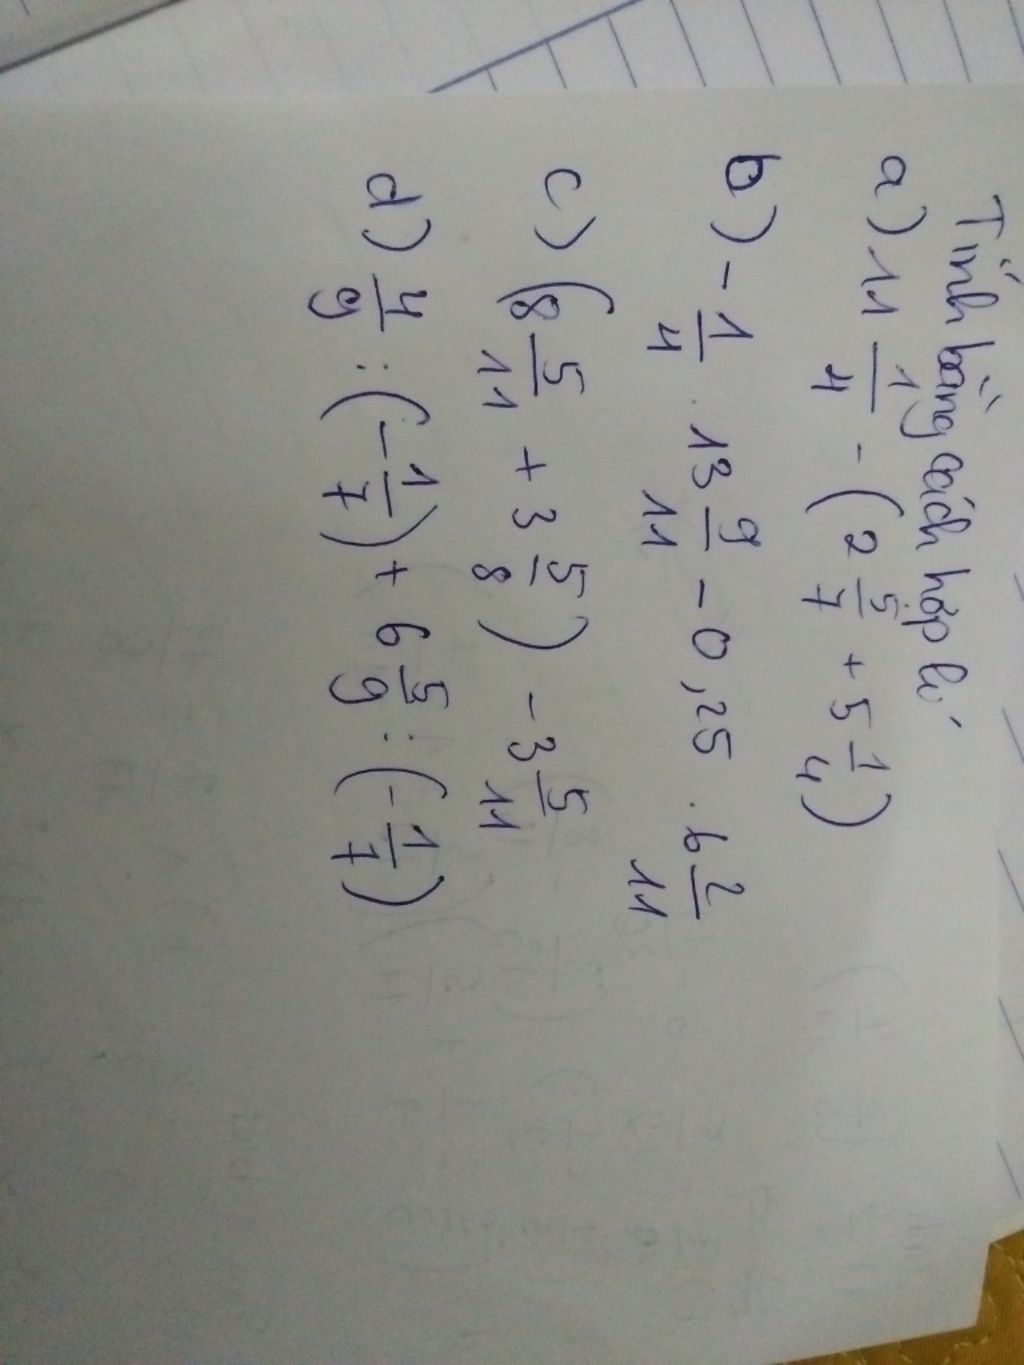 Tính bằng cách hợp lí
a) 11 1/4 - (2 5/7 + 5 1/4)
b) - 1/4 . 13 9/11 - 0,25 . 6 2/11
c) (8 5/11 + 3 5/8) - 3 5/11
d) 4/9 : (- 1/7) + 6 5/9 : (- 1/7)